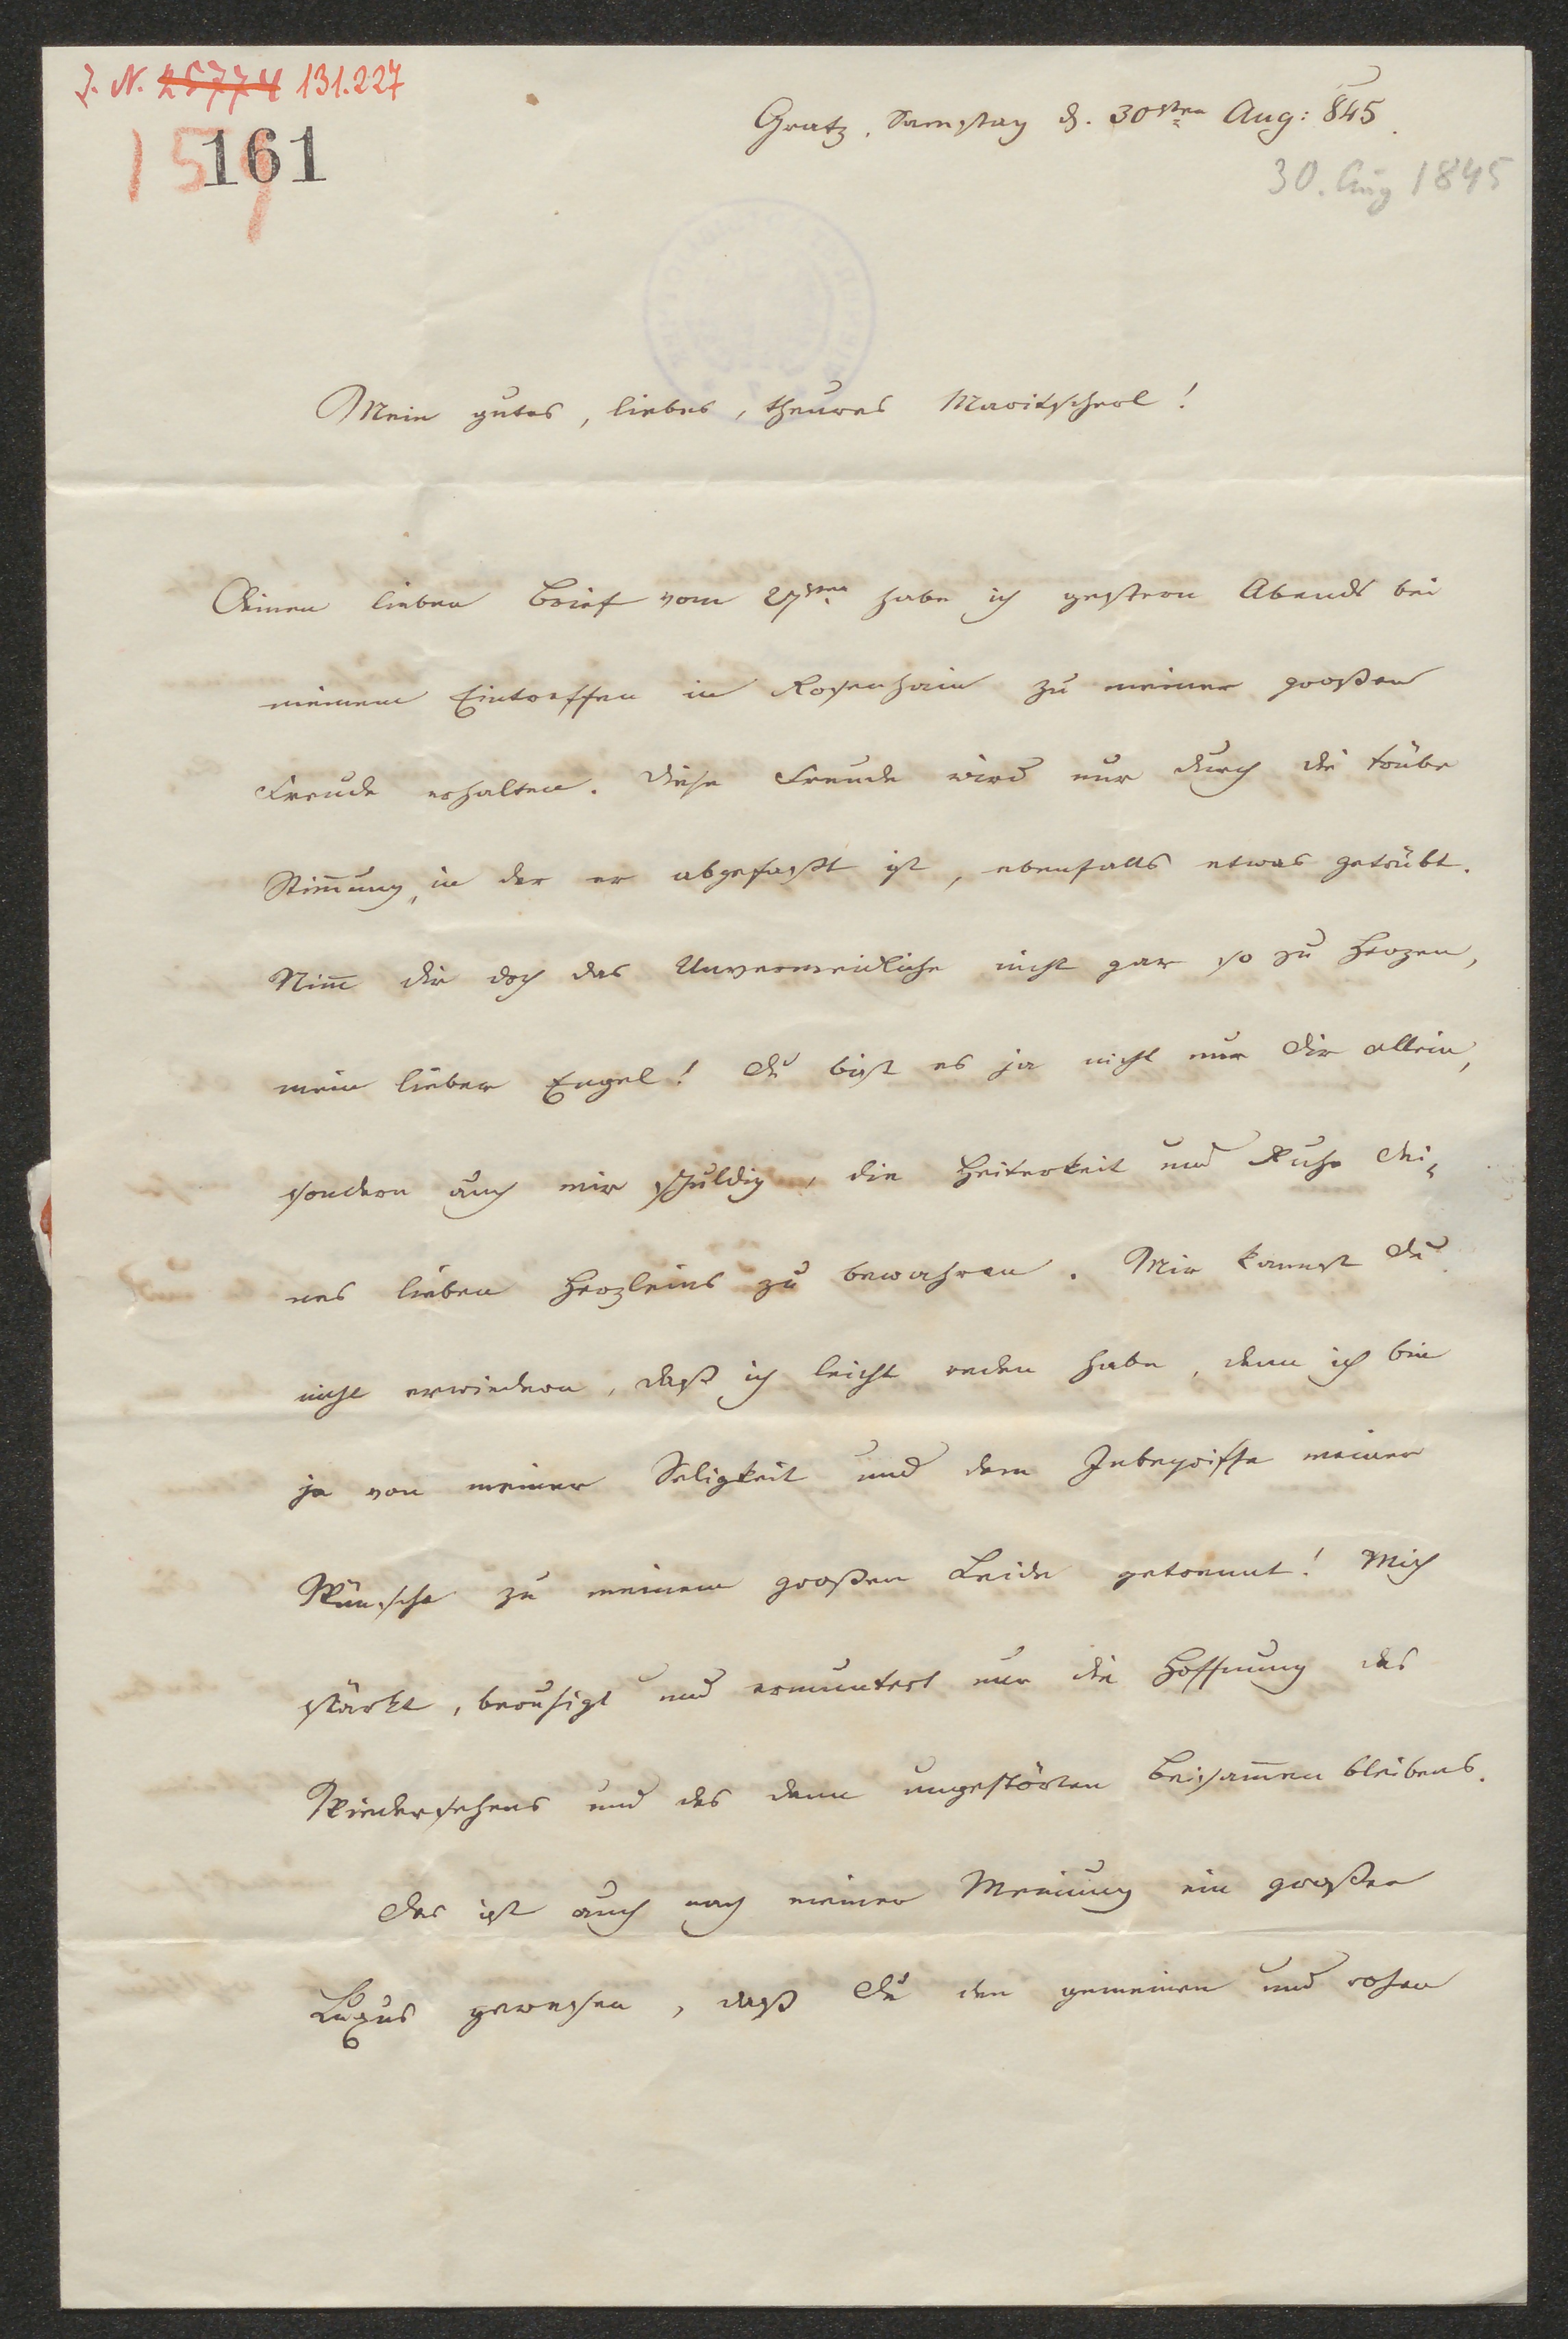 J. N. 25774 131.227
159
161
Gratz, Samstag d. 30sten Aug: 845.
30. Aug 1845
Mein gutes, liebes, theures Maritscherl!
Deinen lieben Brief vom 27ten habe ich gestern Abends bei
meinem Eintreffen in Rosenhain zu meiner großen
Freude erhalten. Diese Freude wird nur durch die trübe
Stim̄ung, in der er abgefaßt ist, ebenfalls etwas getrübt.
Nim̄ dir doch das Unvermeidliche nicht gar so zu Herzen,
mein lieber Engel! Du bist es ja nicht nur Dir allein,
sondern auch mir schuldig, die Heiterkeit und Ruhe Dei-
nes lieben Herzleins zu bewahren. Mir kannst Du
nicht erwiedern, daß ich leicht reden habe, denn ich bin
ja von meiner Seligkeit und dem Inbegriffe meiner
Wünsche zu meinem großen Leide getrennt! Mich
stärkt, beruhigt und ermuntert nur die Hoffnung des
Wiedersehens und des dann ungestörten Beisam̄en bleibens.
Das ist auch nach meiner Meinung ein großer
Luxus gewesen, daß Du den gemeinen und rohen